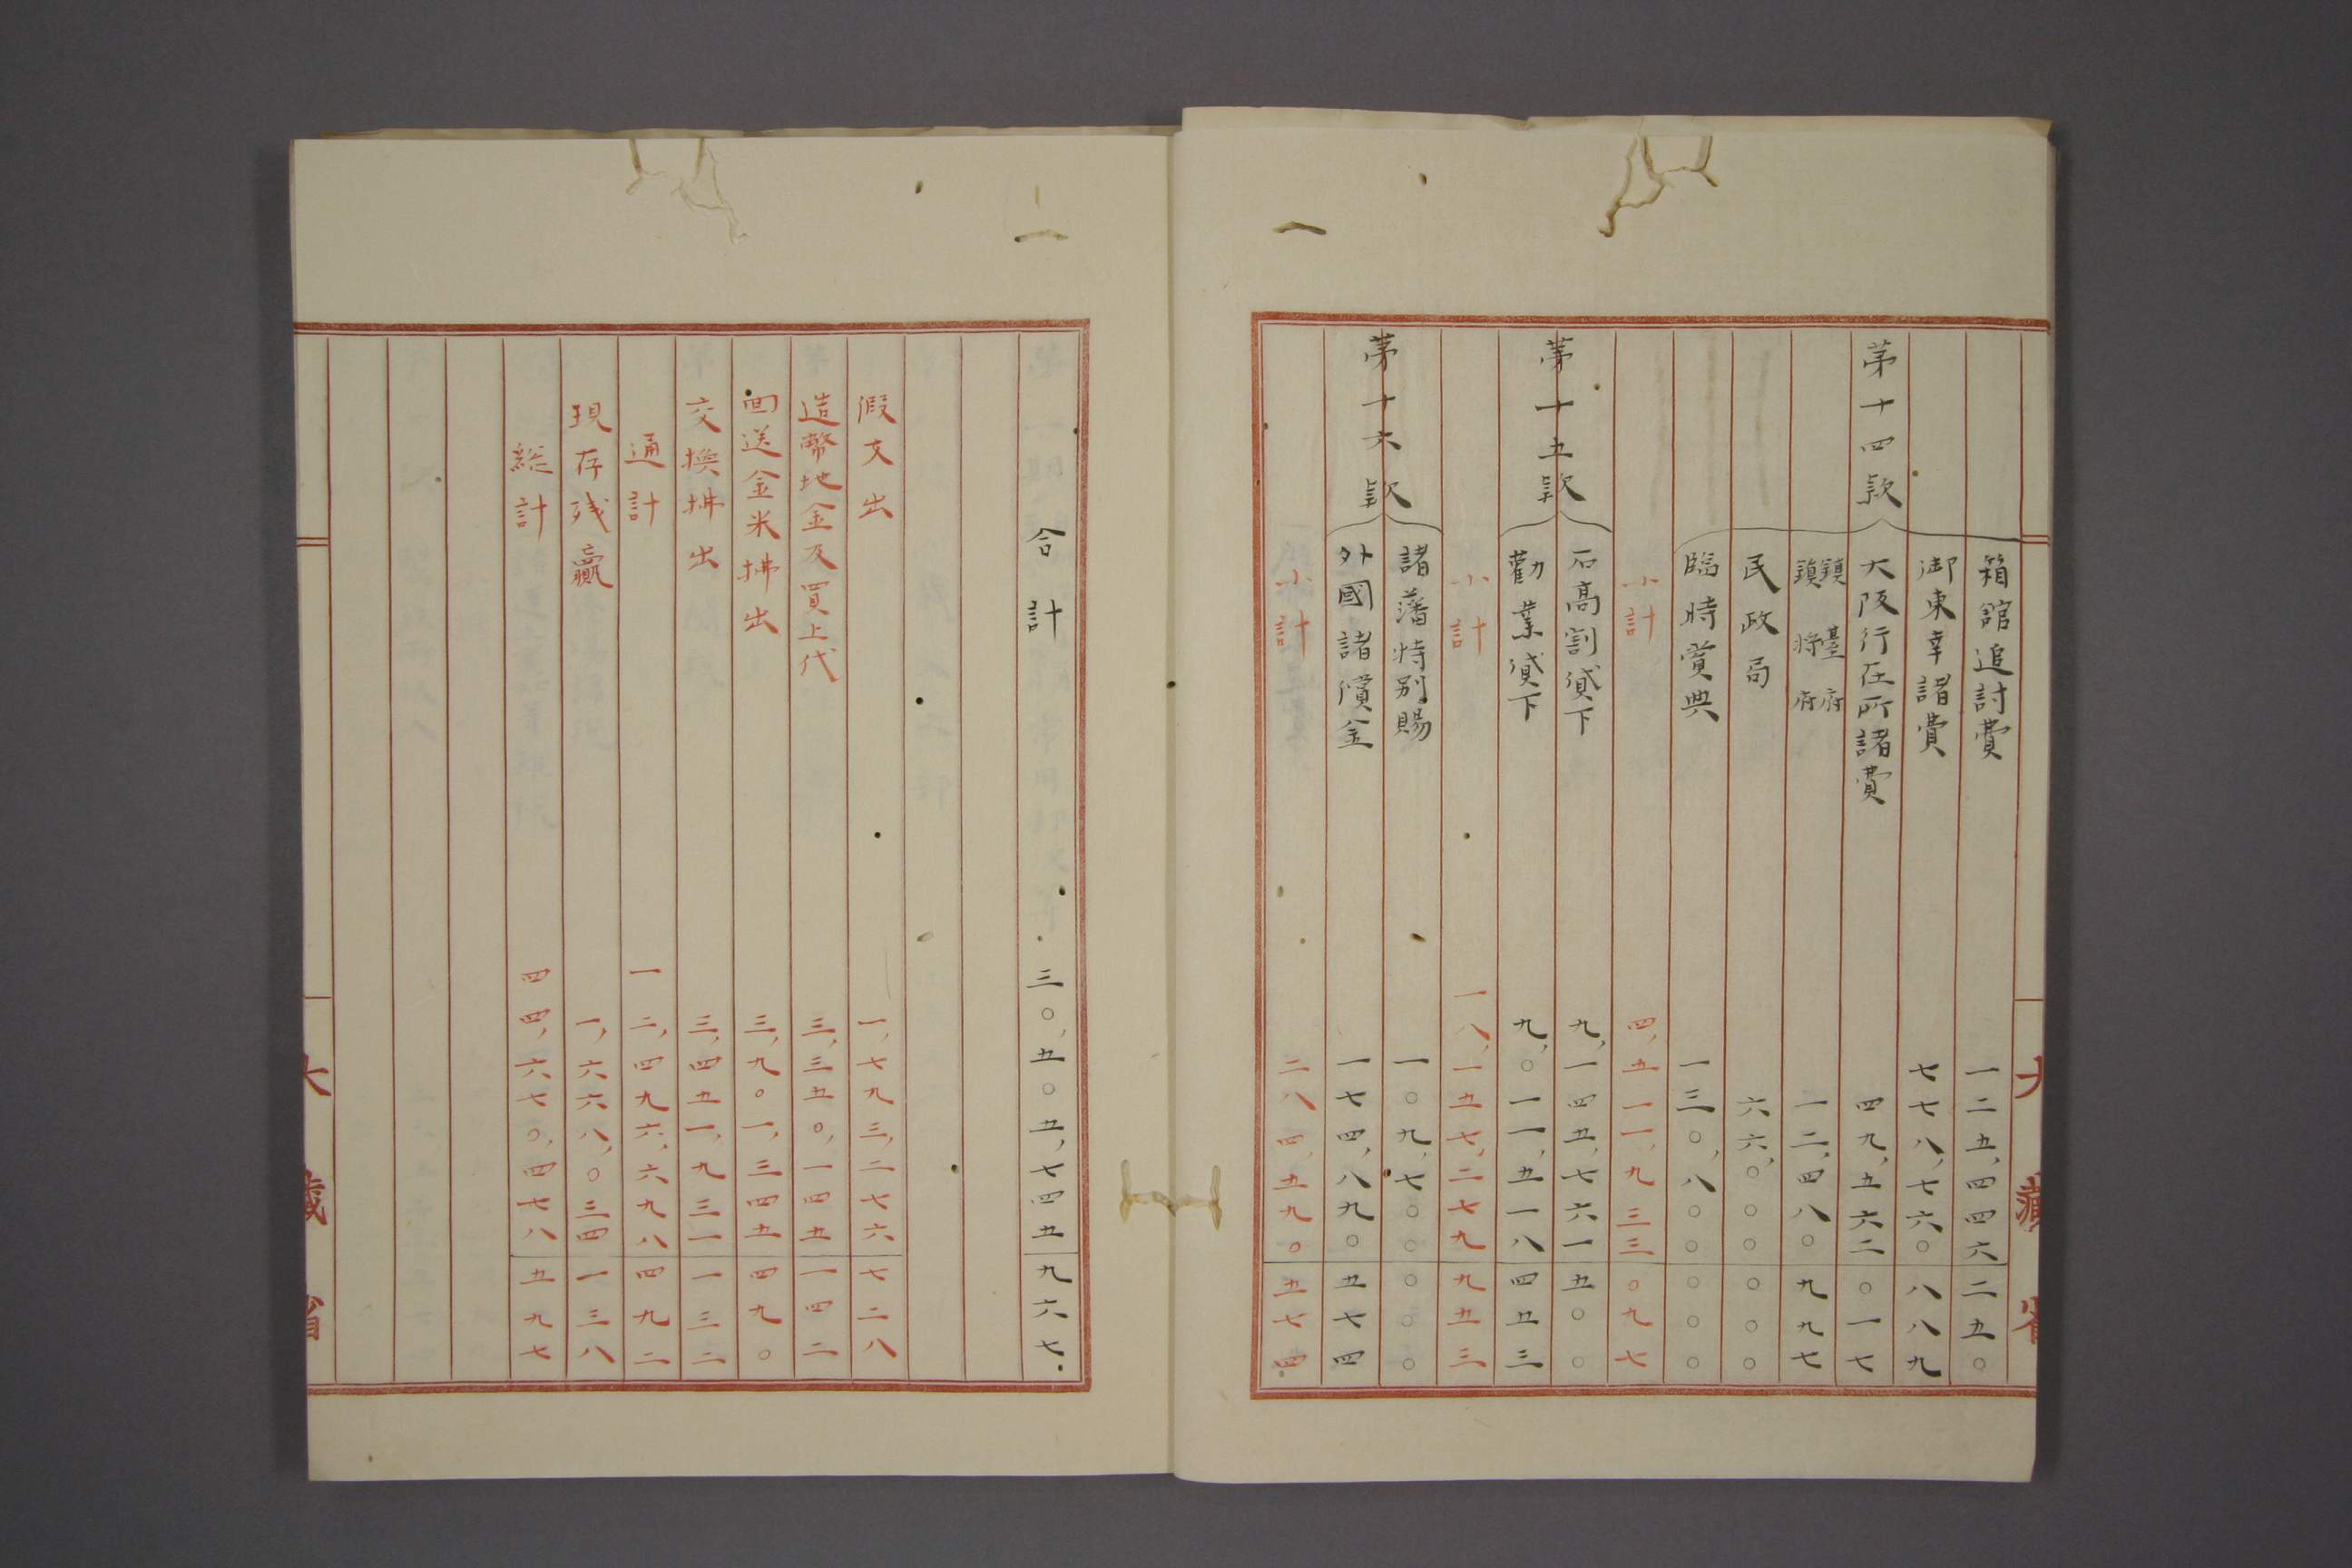 大藏省
第十四款
箱館追討費 一二五,四四六二五〇
御東幸諸費 七七八,七六〇八八九
大阪行在所諸費 四九,五六二〇一七
鎮臺府
鎮將府 一二,四八〇九九七
民政局 六六,〇〇〇〇〇〇
臨時賞典 一三〇,八〇〇〇〇〇
小計 四,五一一,九三三〇九七
第十五款
石高割貸下 九,一四五,七六一五〇〇
勸業貸下 九,〇一一,五一八四五三
小計 一八,一五七,二七九九五三
第十六款
諸藩特別賜 一〇九,七〇〇〇〇〇
外國諸償金 一七四,八九〇五七四
小計 二八四,五九〇五七四
合計 三〇,五〇五,七四五九六七
假支出 一,七九三,二七六七二八
造幣地金及買上代 三,三五〇,一四五一四二
回送金米拂出 三,九〇一,三四五四九〇
交換拂出 三,四五一,九三一一三二
通計 一二,四九六,六九八四九二
現存残贏 一,六六八,〇三四一三八
総計 四四,六七〇,四七八五九七
大藏省